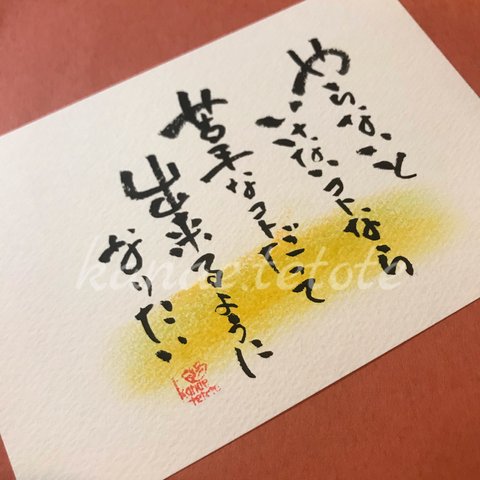 やらないと
いけないコトなら
苦手なコトだって
出来るように
なりたい
kanae.tetote
kanae
tetote